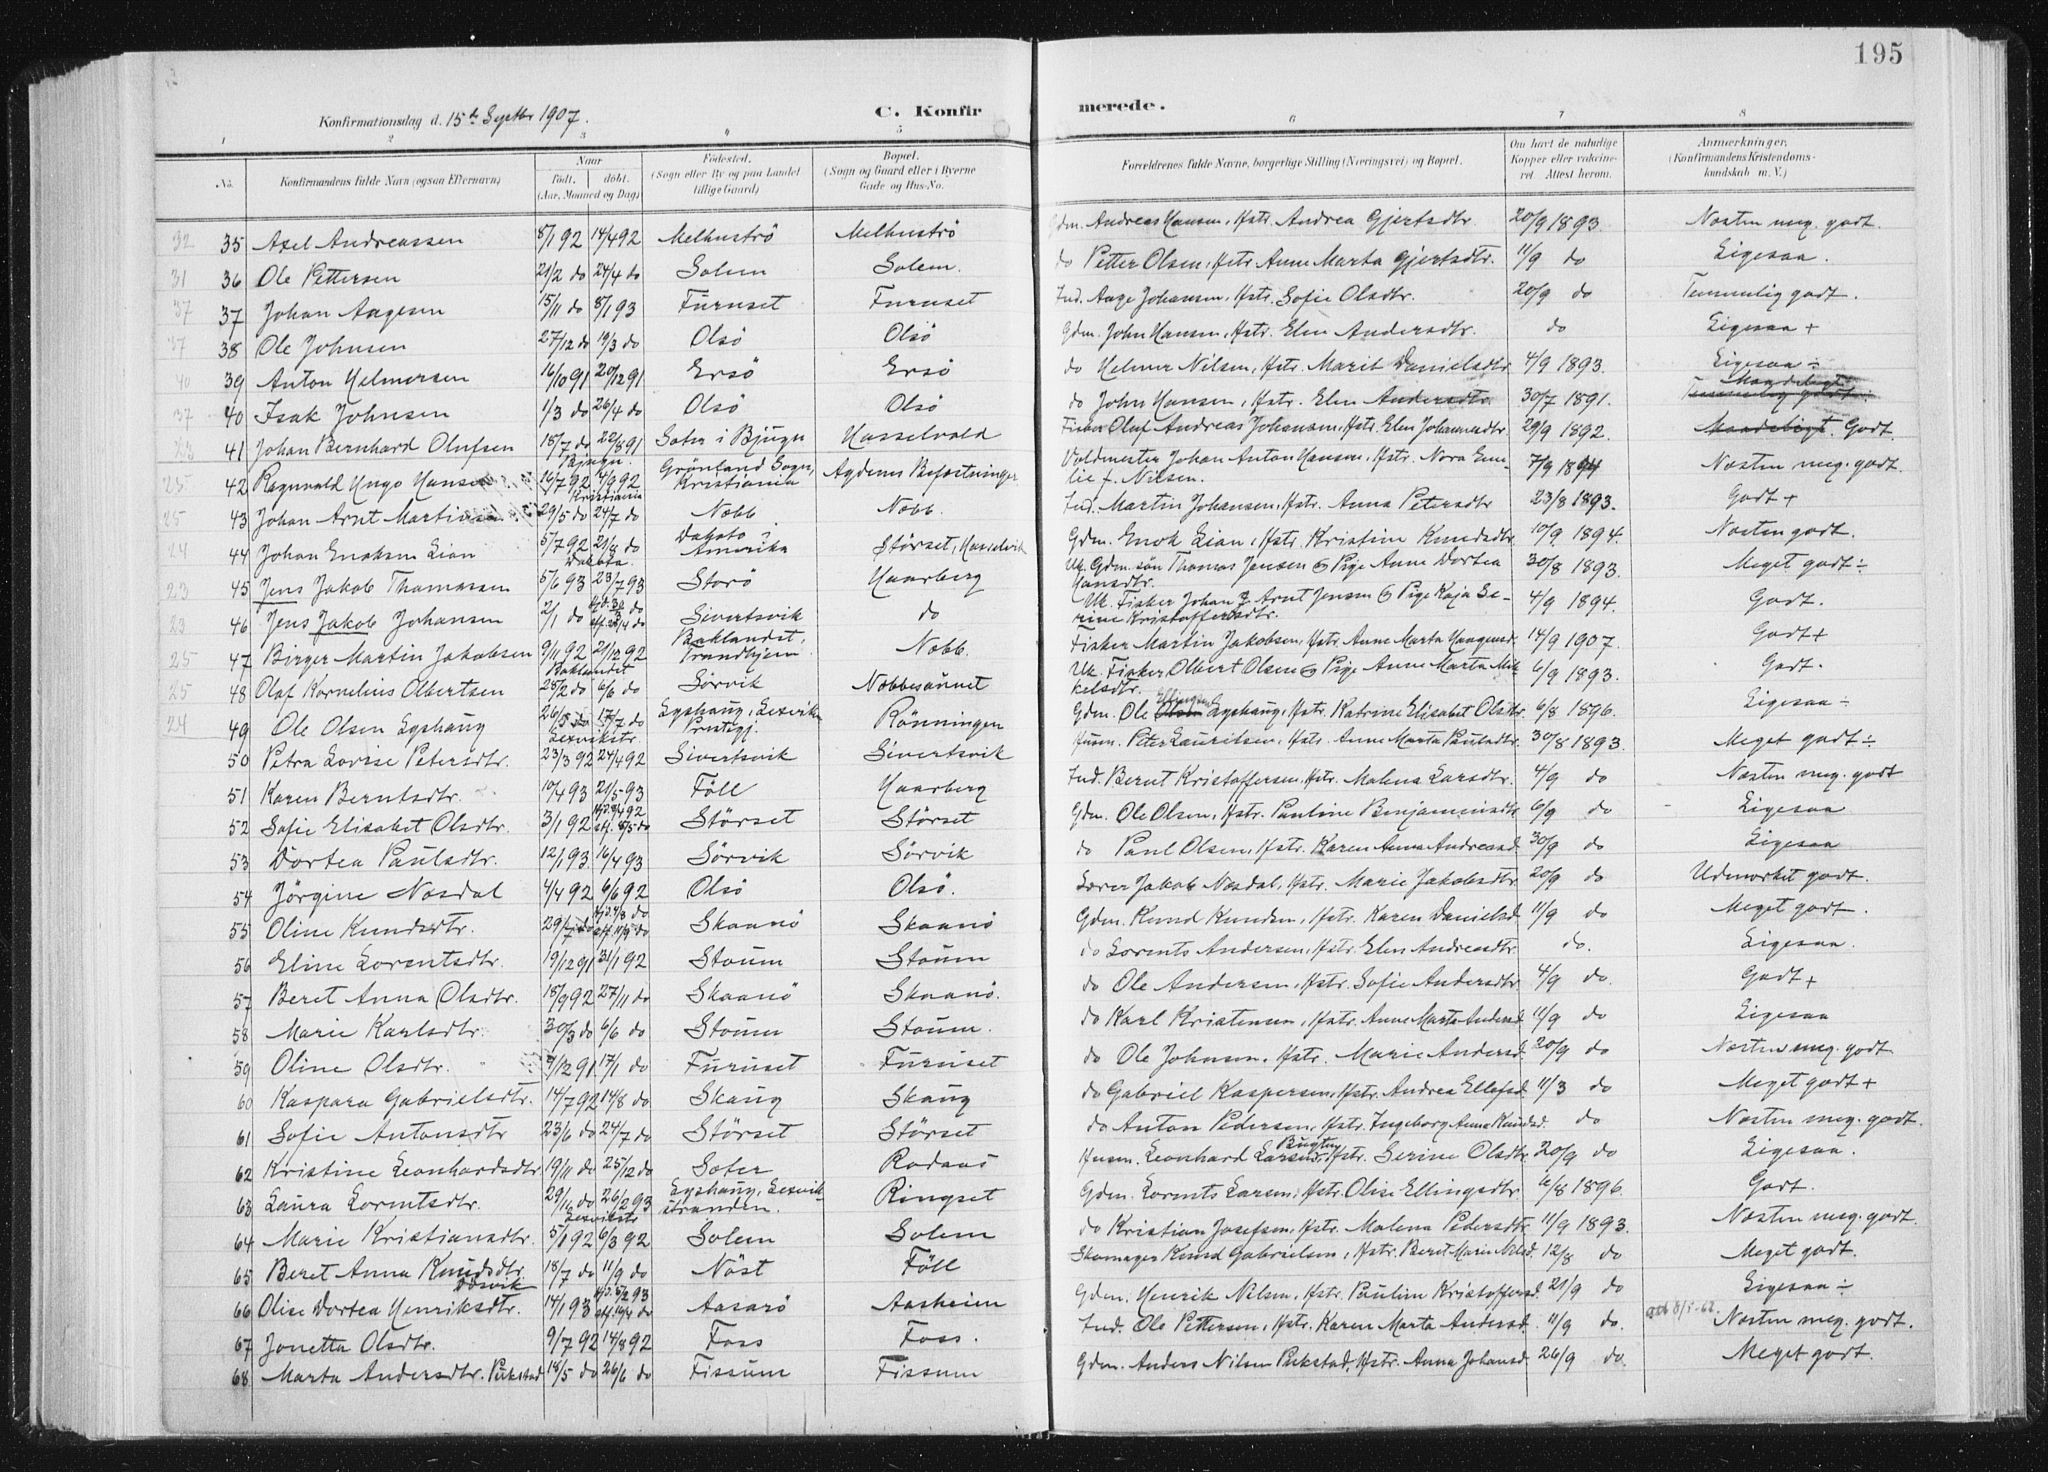 195
Konfirmationsdag d. 15de Septbr 1907.
C. Konfirmerede.
1 2 3 4 5 6 7 8
No.
Konfirmandens fulde Navn (ogsaa Efternavn)
Naar
født. døbt.
(Aar, Maaned og Dag)
Fødested.
(Sogn eller By og paa Landet
tillige Gaard)
Bopæl.
(Sogn og Gaard eller i Byerne
Gade og Hus-No.
Forældrenes fulde Navne, borgerlige Stilling (Næringsvei) og Bopæl.
Om havt de naturlige
Kopper eller vaccineret.
Attest herom.
Anmærkninger.
(Konfirmandens Kristendomskundskab m. V.)
32 35 Axel Andreassen 8/1 92 14/4 92 Melhustrø Melhustrø Gdm. Andreas Hansen, Hstr. Andrea Gjertsdtr 20/9 1893. Næsten meg. godt.
31 36 Ole Pettersen 21/2 do 24/4 do Solem Solem. do Petter Olsen, Hstr. Anne Marta Gjertsdtr. 11/9 do Ligesaa.
37 37 Johan Aagesen 15/11 do 8/1 93 Furuset Furuset Ind. Aage Johansen, Hstr. Sofie Olsdtr. 20/9 do Temmelig godt.
37 38 Ole Johnsen 27/12 do 19/3 do Olsö Olsö Gdm. John Hansen, Hstr. Elen Andersdtr. do Ligesaa +
40 39 Anton Helmersen 16/10 91 20/12 91 Ersö Ersö do Helmer Nilsen, Hstr. Marit Danielsdtr 4/9 1893. Ligesaa ÷
37 40 Isak Johnsen 1/3 do 26/4 do Olsö Olsö do John Hansen, Hstr. Elen Andersdtr. 30/7 1891. Temmelig godt. Maadeligt
41 Johan Bernhard Olufsen 18/7 do 22/8 91 Bjugn. Sæter i Bjugn Hasselvold Fisker Oluf Andreas Johansen, Hstr. Elen Johannesdtr 29/9 1892. Maadeligt. Godt.
25 42 Ragnvald Hugo Hansen 16/7 92 4/9 92 Kristiania Grønland Sogn, Kristiania Agdenes Befæstninger Voldmester Johan Anton Hansen, Hstr. Nora Emelie f. Nilsen. 7/9 1894 Næsten meg. godt.
25 43 Johan Arnt Martinsen 29/5 do 24/7 do Nobb Nobb. Ind. Martin Johansen, Hstr. Anna Petersdtr 23/8 1893. Godt +
24 44 Johan Enoksen Lian 5/7 92 21/8 do Dakota. Dakota i Amerika Størset, Hasselvik Gdm. Enok Lian, Hstr. Kristine Knudsdtr. 10/9 1894. Næsten godt.
23 45 Jens Jakob Thomassen 5/6 93 23/7 93 Storö Haarberg Uk. Gdm. søn Thomas Jensen & Pige Anne Dortea Hansdtr. 30/8 1893. Meget godt ÷
23 46 Jens Jakob Johansen 2/1 do Sivertsvik do Uk. Fisker Johan Arnt Jensen & Pige Kaja Serine Kristoffersdtr. 4/9 1894. Godt.
25 47 Birger Martin Jakobsen 9/11 92 21/12 92 Baklandet Baklandet, Trondhjem Nobb. Fisker Martin Jakobsen, Hstr. Anne Marta Haagensd. 14/9 1907. Godt +
25 48 Olaf Kornelius Olbertsen 28/2 do 6/6 do Sørvik Nobbesundet Uk. Fisker Olbert Olsen & Pige Anne Marta Mikkelsdtr. 6/9 1893. Godt.
24 49 Ole Olsen Lyshaug 26/5 do 17/7 do Lexvikstr. Lyshaug, Lexviken Prestgj. Rönningen Gdm. Ole Olsen Ellingsen Lyshaug, Hstr. Katrine Elisabet Olsdtr 6/8 1896. Ligesaa ÷
50 Petra Lovise Petersdtr. 23/3 92 24/4 92 Sivertsvik Sivertsvik Husm. Peter Lauritsen, Hstr. Anne Marta Paulsdtr. 30/8 1893. Meget godt ÷
51 Karen Berntsdtr. 10/4 93 21/5 93 Föll Haarberg Ind. Bernt Kristoffersen, Hstr. Malena Larsdtr. 4/9 do Næsten meg. godt
52 Sofie Elisabet Olsdtr. 3/1 92 Hjd. 9/4 92 stf. 8/5 do Størset Størset Gdm. Ole Olsen, Hstr. Pauline Benjaminsdtr 6/9 do Ligesaa
53 Dortea Paulsdtr. 12/1 93 16/4 93 Sørvik Sørvik do Paul Olsen, Hstr. Karen Anna Andreasd. 30/9 do Ligesaa
54 Jörgine Næsdal 4/4 92 6/6 92 Olsö Olsö. Lærer Jakob Næsdal, Hstr. Marie Jakobsdtr 20/9 do Udmærket godt.
55 Oline Knudsdtr. 29/7 do Hjd. 4/8 do stf. 11/9 do Skaanö Skaanö Gdm. Knud Knudsen, Hstr. Karen Danielsd. 11/9 do Meget godt.
56 Eline Lorentsdtr. 19/12 91 31/1 92 Stoum Stoum do Lorents Andersen, Hstr. Elen Andreasdtr. do. Ligesaa.
57 Beret Anna Olsdtr. 18/9 92 27/11 do Skaanö Skaanö. do Ole Andersen, Hstr. Sofie Andersdtr 4/9 do. Godt +
58 Marie Karlsdtr. 30/3 do 6/6 do Stoum Stoum. do Karl Kristensen, Hstr. Anne Marta Andersd. 11/9 do Ligesaa
59 Oline Olsdtr. 7/12 91 17/1 do Furuset Furuset do Ole Johnsen, Hstr. Marie Andersd. 20/9 do Næsten meg. godt
60 Kaspara Gabrielsdtr. 14/7 92 14/8 do Skaug Skaug do Gabriel Kaspersen, Hstr. Andrea Ellefsd. 11/3 do Meget godt +
61 Sofie Antonsdtr 23/6 do 24/7 do Størset Størset do Anton Pedersen, Hstr. Ingeborg Anna Knudsd. do Næsten meg. godt.
62 Kristine Leonhardsdtr 19/11 do 25/12 do Sæter Rodaas Husm. Leonhard Larsen Bugten, Hstr. Serine Olsdtr. 20/9 do Ligesaa.
63 Laura Lorentsdtr. 29/11 do 26/2 93 Lexvikstr Lyshaug, Lexvikstranden. Ringset Gdm. Lorents Larsen, Hstr. Olise Ellingsdtr. 6/8 1896. Godt.
64 Marie Kristiansdtr. 5/1 92 6/3 92 Solem Solem do Kristian Josefsen, Hstr. Malena Pedersdtr. 11/9 1893. Næsten meg. godt.
65 Beret Anna Knudsdtr. 18/7 do 11/9 do Nöst Föll Skomager Knud Gabrielsen, Hstr. Beret Marie Nilsd. 12/8 do Meget godt.
66 Olise Dortea Henriksdtr. Ödsvik 14/1 93 Hjd. 5/2 93 stf. 16/4 do Aasarö Aasheien Gdm. Henrik Nilsen, Hstr. Pauline Kristoffersd. 21/9 do Ligesaa ÷
67 Jonetta Olsdtr. 9/7 92 14/8 92 Foss Foss. Ind. Ole Pettersen, Hstr. Karen Marta Andersd. 11/9 do. Næsten meg. godt.
68 Marta Andersdtr. Pukstad 18/5 do 26/6 do Fissum Fissum Gdm. Anders Nilsen Pukstad, Hstr. Anna Johansd. 26/9 do. Meget godt.